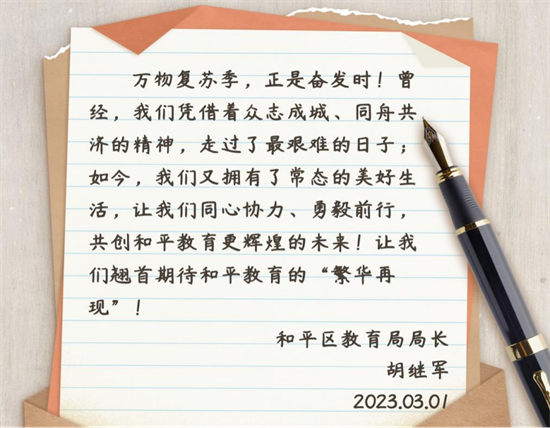 万物复苏季，正是奋发时！曾
经，我们凭借着众志成城、同舟共
济的精神，走过了最艰难的日子；
如今，我们又拥有了常态的美好生
活，让我们同心协力、勇毅前行，
共创和平教育更辉煌的未来！让我
们翘首期待和平教育的“繁华再
现”！
和平区教育局局长
胡继军
2023.03.01